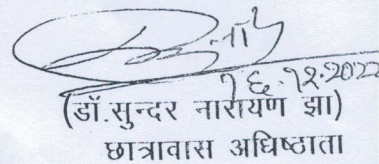 १६.१२.२०२२
(डॉ.सुन्दर नारायण झा)
छात्रावास अधिष्ठाता